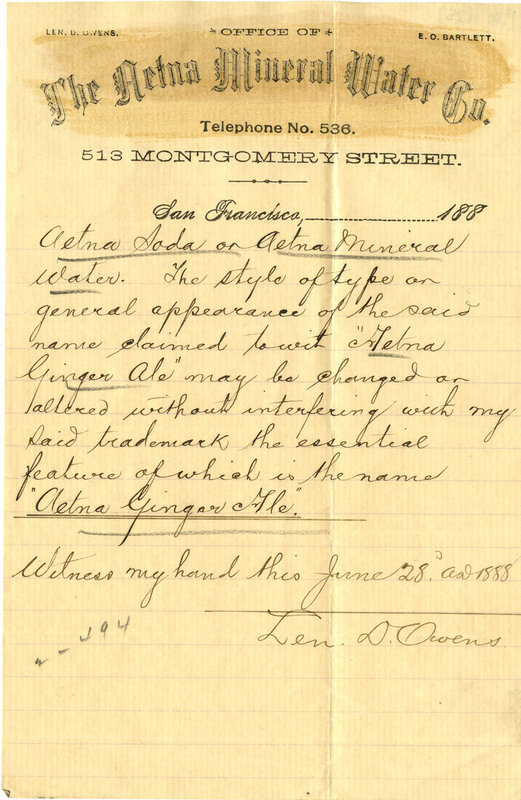 LEN. D. OWENS.
OFFICE OF
E. O. BARTLETT.
The Aetna Mineral Water Co.
Telephone No. 536.
513 MONTGOMERY STREET.
San Francisco, 188
Aetna Soda or Aetna Mineral
Water. The style of type or
general appearance of the said
name claimed to wit "Aetna
Ginger Ale" may be changed or
altered without interfering with my
said trademark the essential
feature of which is the name
"Aetna Ginger Ale".
Witness my hand this June 28" AD 1888
Len. D. Owens.